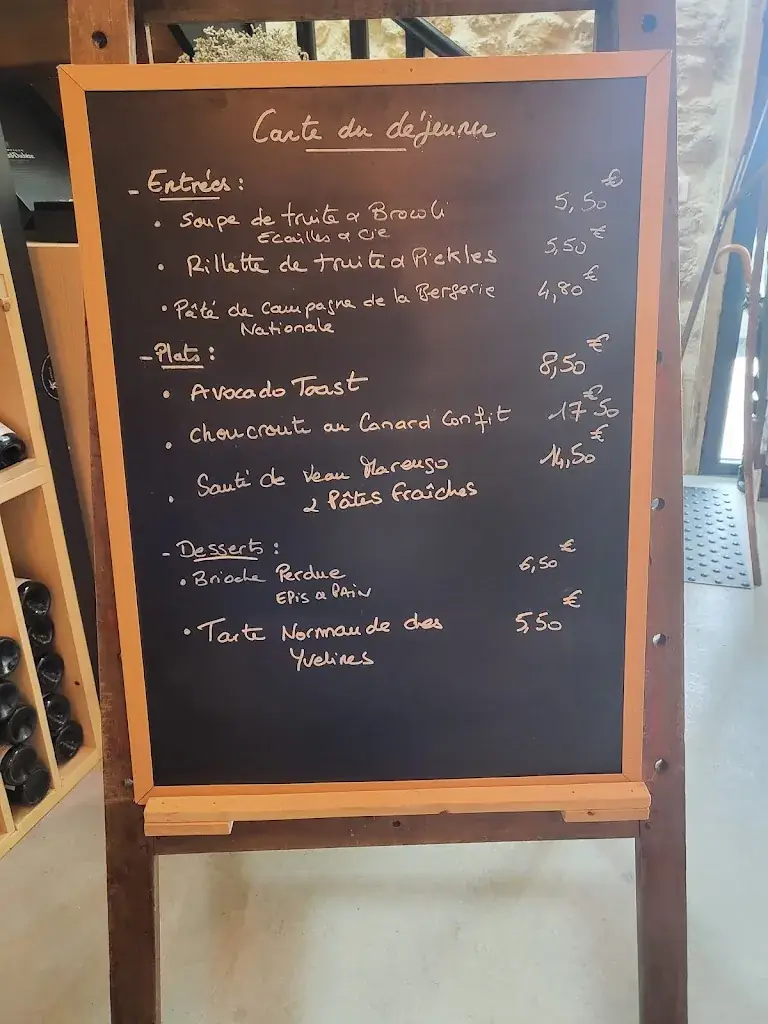 Carte du déjeuner
- Entrées : €
• Soupe de truite & Brocoli 5,50
Ecailles & cie
• Rillette de truite & Pickles 5,50 €
• Pâté de campagne de la Bergerie 4,80 €
Nationale
- Plats :
• Avocado Toast 8,50 €
• choucroute au Canard Confit 17€50
• Sauté de Veau Marengo 14,50 €
& Pâtes Fraîches
- Desserts :
• Brioche Perdue 6,50 €
EPIS & PAIN
• Tarte Normande des 5,50 €
Yvelines